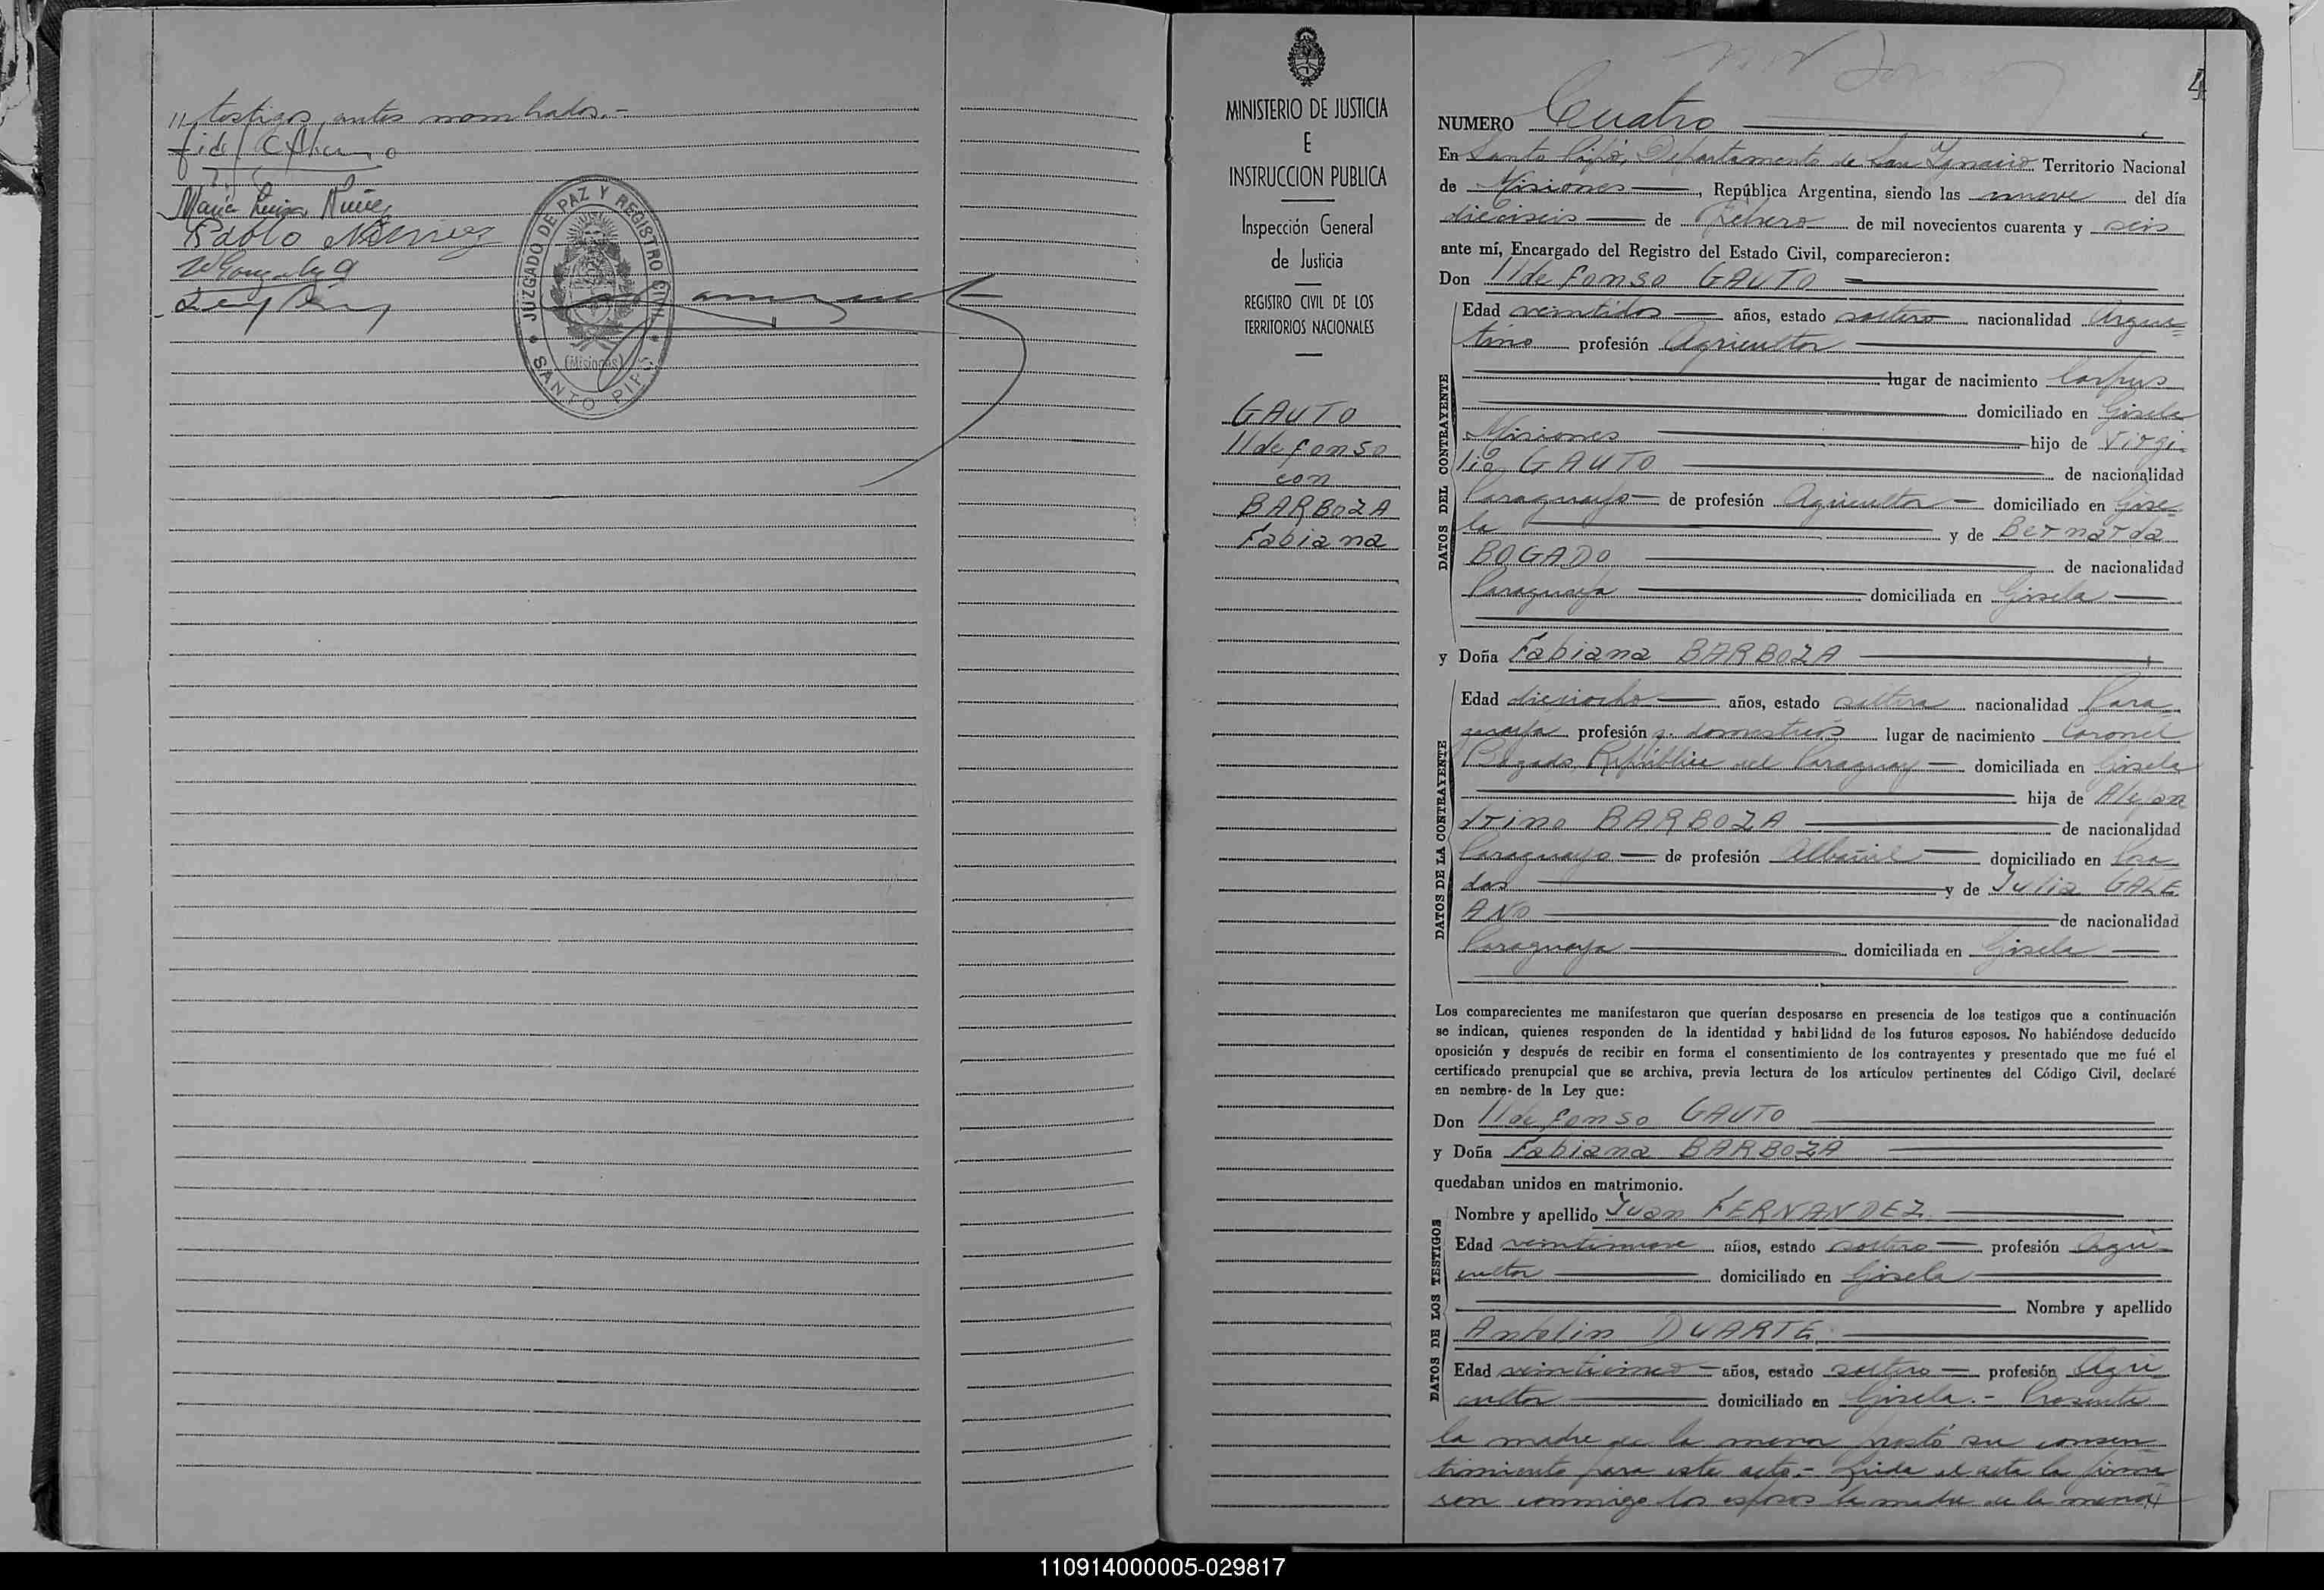 testigos antes nombrados.-
Maria Luisa Nuñez
Pablo
JUZGADO DE PAZ Y REGISTRO CIVIL
(Misiones)
SANTO PIPÓ
MINISTERIO DE JUSTICIA
E
INSTRUCCION PUBLICA
Inspección General
de Justicia
REGISTRO CIVIL DE LOS
TERRITORIOS NACIONALES
GAUTO
Ildefonso
con
BARBOZA
Fabiana
4
NUMERO Cuatro
En Santo Pipó, Departamento de San Ignacio Territorio Nacional
de Misiones, República Argentina, siendo las nueve del día
dieciseis de Febrero de mil novecientos cuarenta y seis
ante mí, Encargado del Registro del Estado Civil, comparecieron:
Don Ildefonso GAUTO
DATOS DEL CONTRAYENTE
Edad veintidos años, estado soltero nacionalidad Argen-
tino profesión Agricultor
lugar de nacimiento Corpus
domiciliado en Gisela
Misiones hijo de Virgi-
lio GAUTO de nacionalidad
Paraguayo de profesión Agricultor domiciliado en Gise-
la y de Bernarda
BOGADO de nacionalidad
Paraguaya domiciliada en Gisela
y Doña Fabiana BARBOZA
DATOS DE LA CONTRAYENTE
Edad dieciocho años, estado soltera nacionalidad Para-
guaya profesión q. domesticos lugar de nacimiento Coronel
Bogado, República del Paraguay domiciliada en Gisela
hija de Alejan-
drino BARBOZA de nacionalidad
Paraguayo de profesión Albañil domiciliado en Posa-
das y de Julia GALE
ANO de nacionalidad
Paraguaya domiciliada en Gisela
Los comparecientes me manifestaron que querían desposarse en presencia de los testigos que a continuación
se indican, quienes responden de la identidad y habilidad de los futuros esposos. No habiéndose deducido
oposición y después de recibir en forma el consentimiento de los contrayentes y presentado que me fué el
certificado prenupcial que se archiva, previa lectura de los artículos pertinentes del Código Civil, declaré
en nombre de la Ley que:
Don Ildefonso GAUTO
y Doña Fabiana BARBOZA
quedaban unidos en matrimonio.
DATOS DE LOS TESTIGOS
Nombre y apellido Juan FERNANDEZ
Edad veintinueve años, estado soltero profesión Agri-
cultor domiciliado en Gisela
Nombre y apellido
Antolin DUARTE
Edad veinticinco años, estado soltero profesión Agri
cultor domiciliado en Gisela.- Presente
la madre de la menor prestó su consen-
timiento para este acto.- Leida el acta la firma-
ron conmigo los esposos la madre de la menor
110914000005-029817